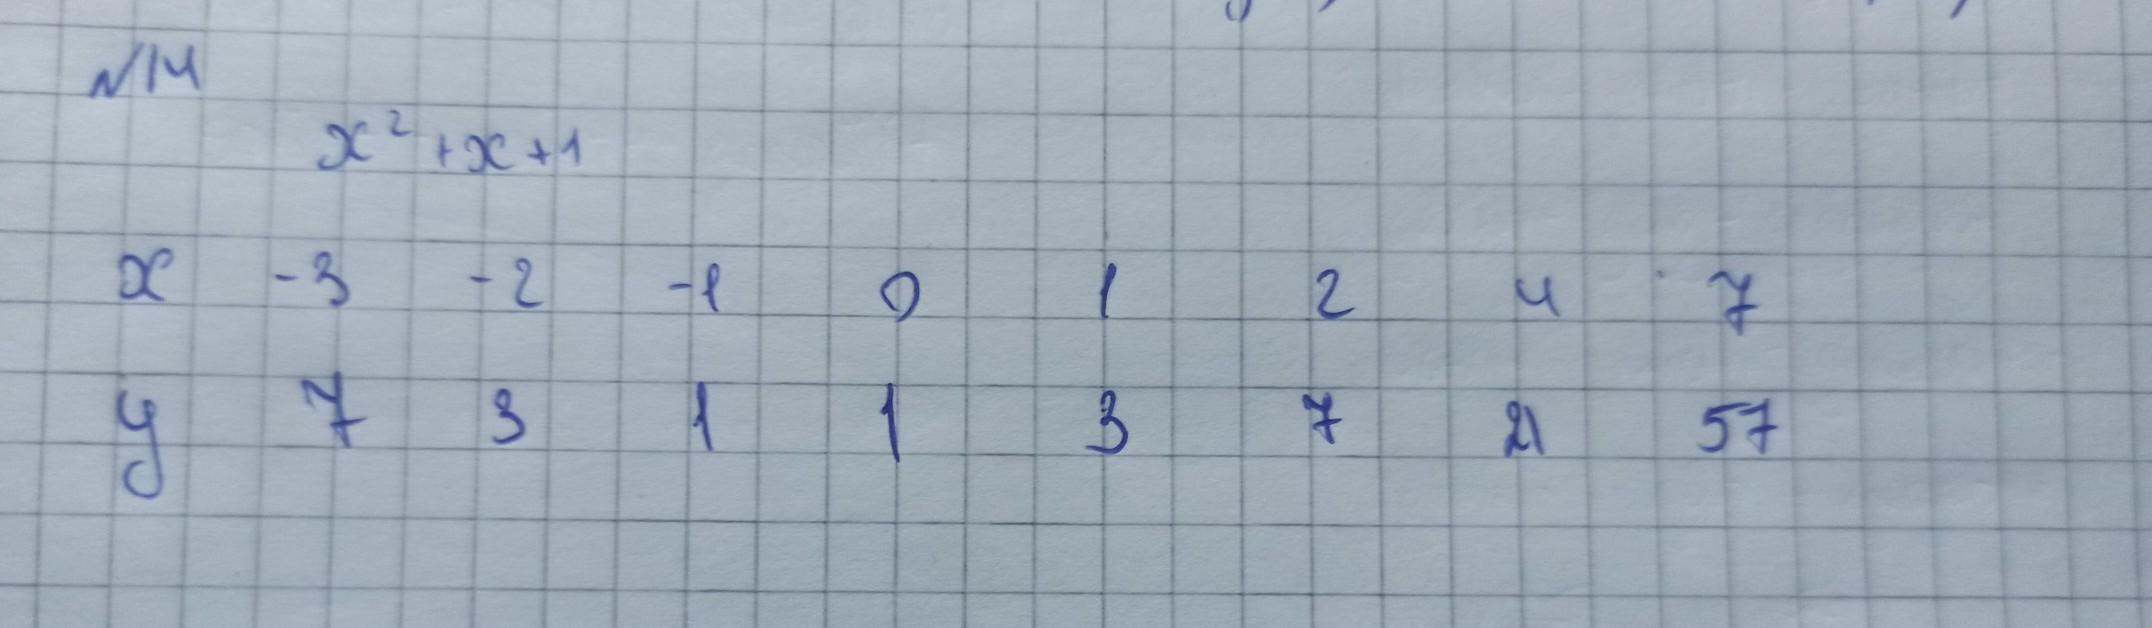 №14
x² + x + 1
x -3 -2 -1 0 1 2 4 7
y 7 3 1 1 3 7 21 57